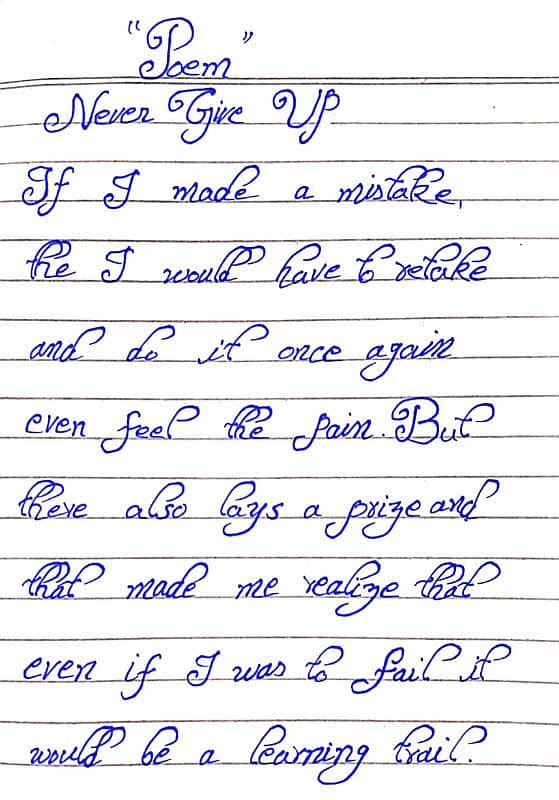 "Poem"
Never Give Up
If I made a mistake,
the I would have to retake
and do it once again
even feel the pain. But
there also lays a prize and
that made me realize that
even if I was to fail it
would be a learning trail.